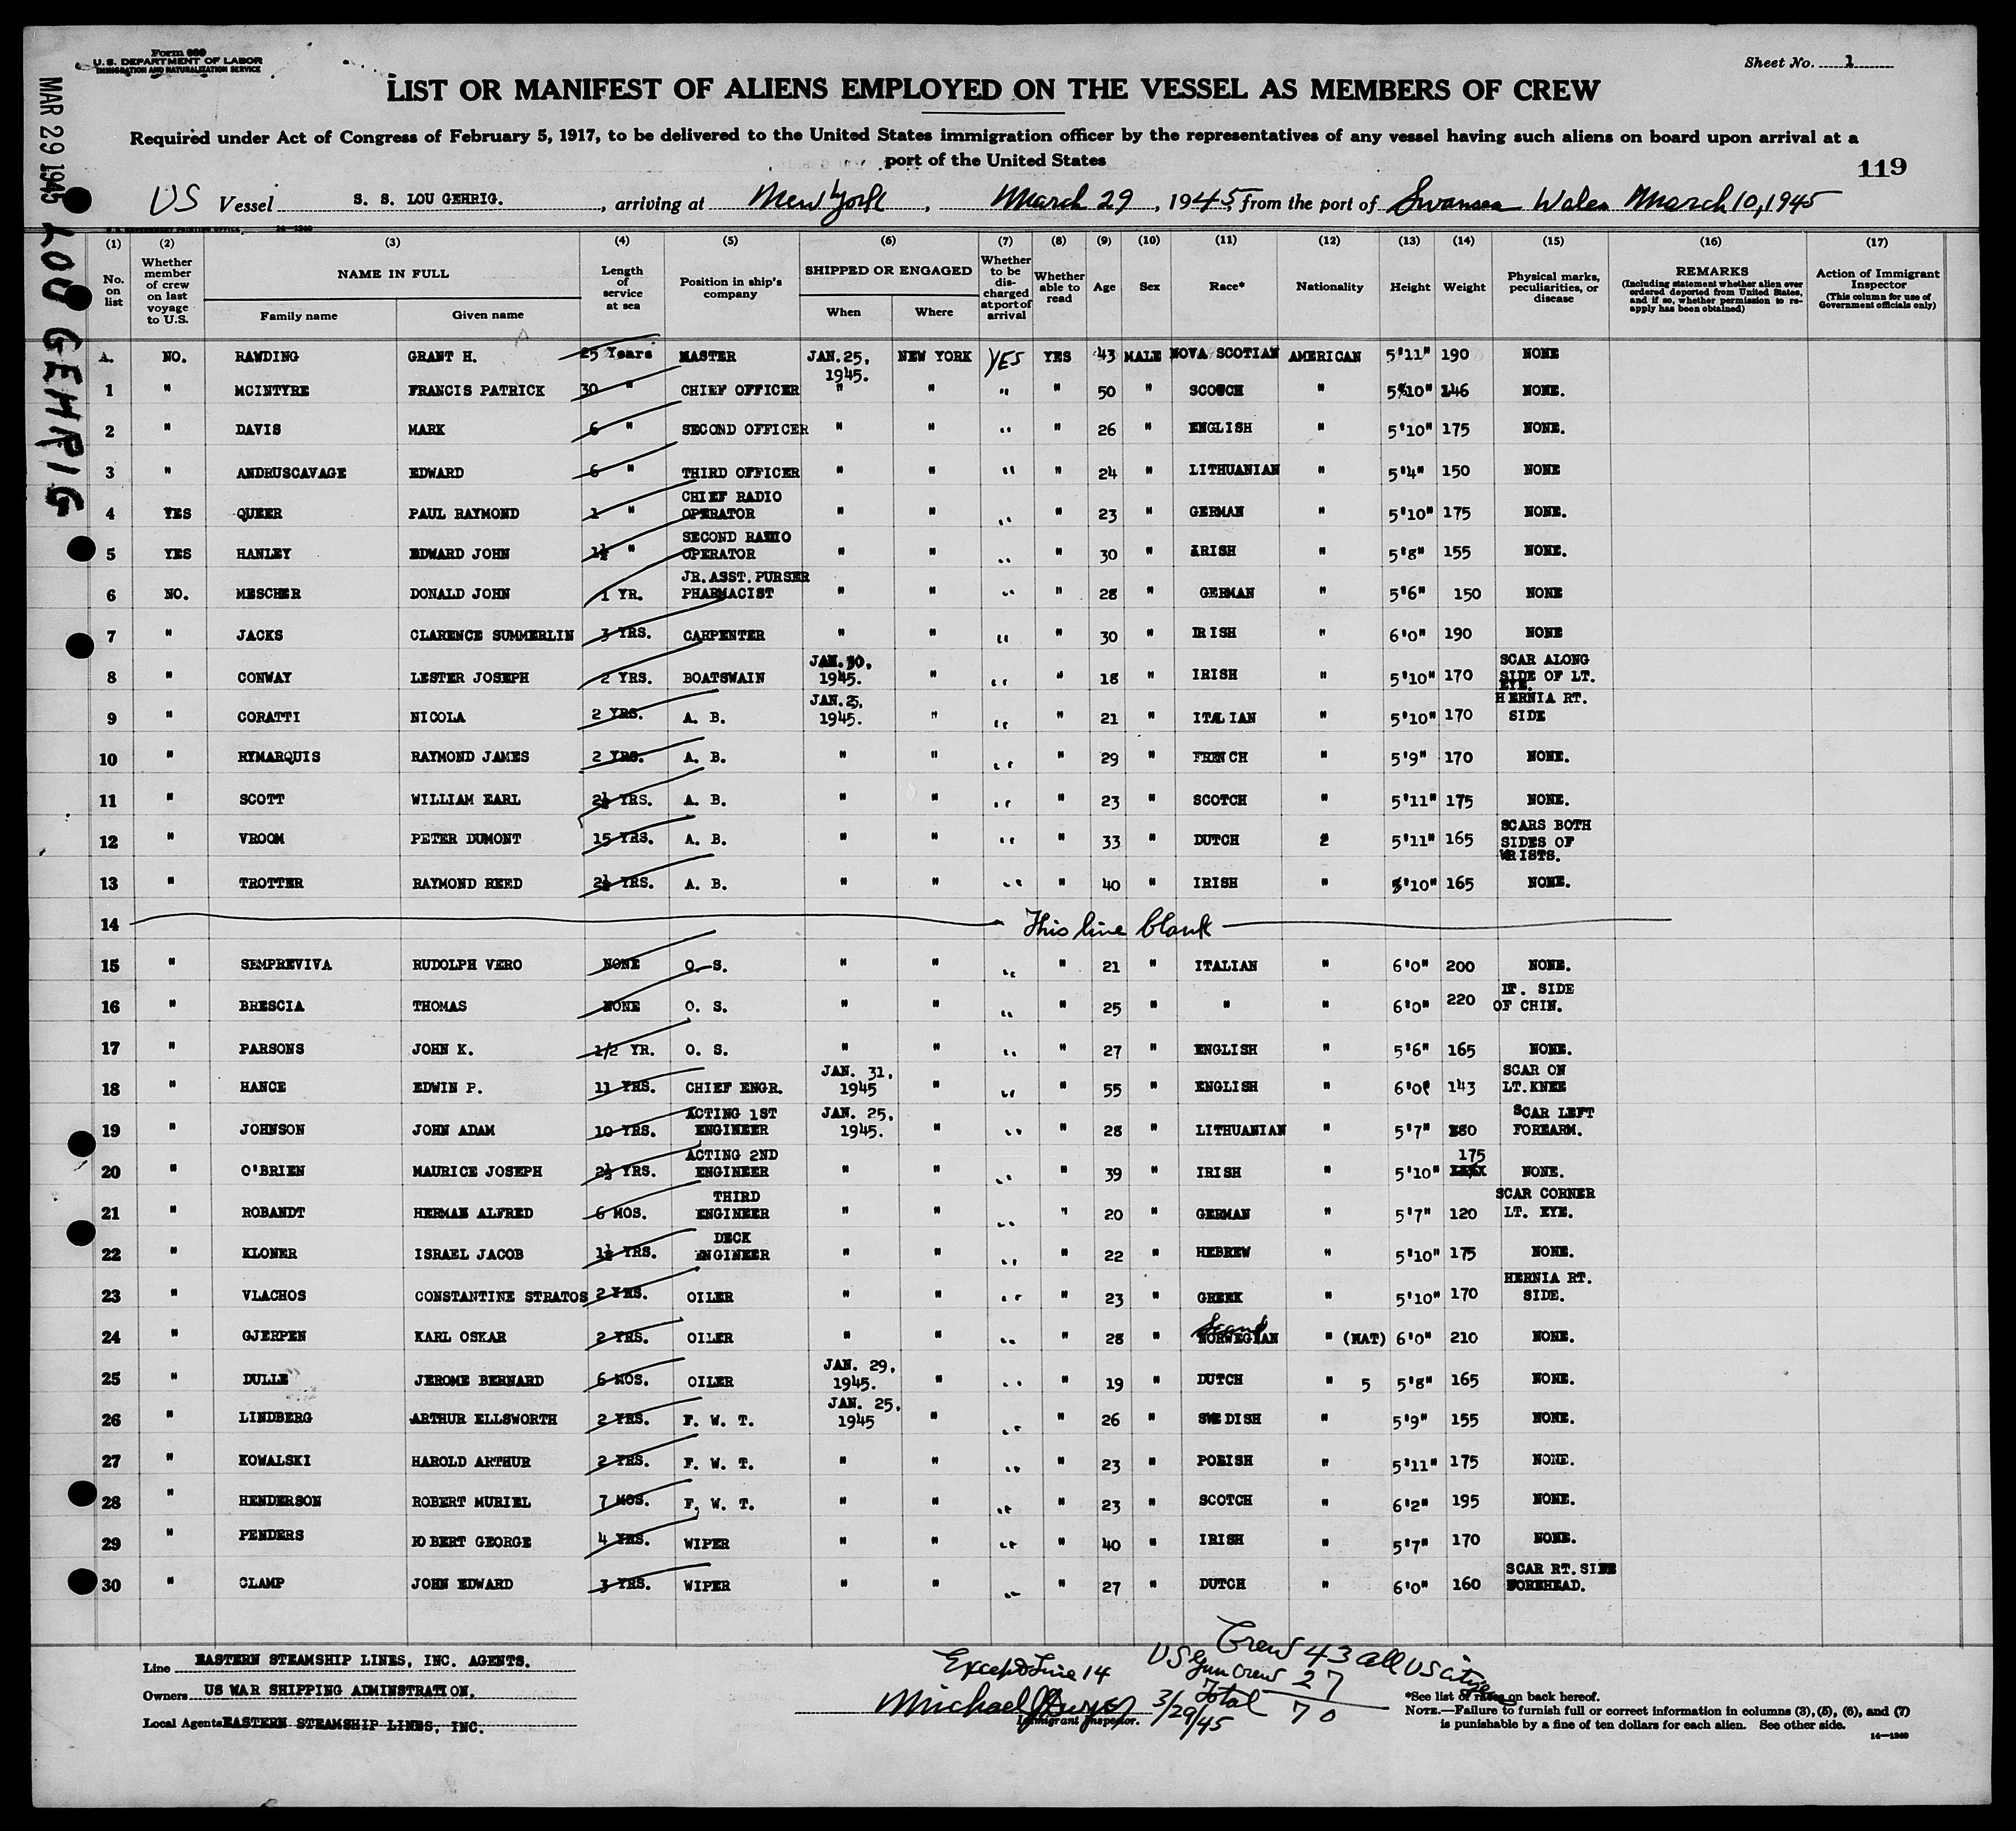 Form 680
U. S. DEPARTMENT OF LABOR
IMMIGRATION AND NATURALIZATION SERVICE
Sheet No. 1
MAR 29 1945 LOU GEHRIG
LIST OR MANIFEST OF ALIENS EMPLOYED ON THE VESSEL AS MEMBERS OF CREW
Required under Act of Congress of February 5, 1917, to be delivered to the United States immigration officer by the representatives of any vessel having such aliens on board upon arrival at a
port of the United States
119
US Vessel S. S. LOU GEHRIG. , arriving at New York , March 29 , 1945, from the port of Swansea Wales March 10, 1945
(1) (2) (3) (4) (5) (6) (7) (8) (9) (10) (11) (12) (13) (14) (15) (16) (17)
No. on list Whether member of crew on last voyage to U.S. NAME IN FULL Family name Given name Length of service at sea Position in ship's company SHIPPED OR ENGAGED When Where Whether to be discharged at port of arrival Whether able to read Age Sex Race* Nationality Height Weight Physical marks, peculiarities, or disease REMARKS (Including statement whether alien ever ordered deported from United States, and if so, whether permission to reapply has been obtained) Action of Immigrant Inspector (This column for use of Government officials only)
A. NO. RAWDING GRANT H. 25 Years MASTER JAN.25, 1945. NEW YORK YES YES 43 MALE NOVA SCOTIAN AMERICAN 5'11" 190 NONE
1 " MCINTYRE FRANCIS PATRICK 30 " CHIEF OFFICER " " " " 50 " SCOTCH " 5'10" 146 NONE.
2 " DAVIS MARK 6 " SECOND OFFICER " " " " 26 " ENGLISH " 5'10" 175 NONE.
3 " ANDRUSCAVAGE EDWARD 6 " THIRD OFFICER " " " " 24 " LITHUANIAN " 5'4" 150 NONE
4 YES QUEER PAUL RAYMOND 1 " CHIEF RADIO OPERATOR " " " " 23 " GERMAN " 5'10" 175 NONE.
5 YES HANLEY EDWARD JOHN 1½ " SECOND RADIO OPERATOR " " " " 30 " IRISH " 5'8" 155 NONE.
6 NO. MESCHER DONALD JOHN 1 YR. JR. ASST. PURSER PHARMACIST " " " " 28 " GERMAN " 5'6" 150 NONE
7 " JACKS CLARENCE SUMMERLIN 3 YRS. CARPENTER " " " " 30 " IRISH " 6'0" 190 NONE
8 " CONWAY LESTER JOSEPH 2 YRS. BOATSWAIN JAN.30, 1945. " " " 18 " IRISH " 5'10" 170 SCAR ALONG SIDE OF LT. EYE.
9 " CORATTI NICOLA 2 YRS. A. B. JAN.25, 1945. " " " 21 " ITALIAN " 5'10" 170 HERNIA RT. SIDE
10 " RYMARQUIS RAYMOND JAMES 2 YRS. A. B. " " " " 29 " FRENCH " 5'9" 170 NONE.
11 " SCOTT WILLIAM EARL 2½ YRS. A. B. " " " " 23 " SCOTCH " 5'11" 175 NONE.
12 " VROOM PETER DUMONT 15 YRS. A. B. " " " " 33 " DUTCH 2 5'11" 165 SCARS BOTH SIDES OF WRISTS.
13 " TROTTER RAYMOND REED 2½ YRS. A. B. " " " " 40 " IRISH " 5'10" 165 NONE.
14 This line blank
15 " SEMPREVIVA RUDOLPH VERO NONE O. S. " " " " 21 " ITALIAN " 6'0" 200 NONE.
16 " BRESCIA THOMAS NONE O. S. " " " " 25 " " " 6'0" 220 SIDE OF CHIN.
17 " PARSONS JOHN K. 1/2 YR. O. S. " " " " 27 " ENGLISH " 5'6" 165 NONE.
18 " HANCE EDWIN P. 11 YRS. CHIEF ENGR. JAN. 31, 1945 " " " 55 " ENGLISH " 6'0 143 SCAR ON LT. KNEE
19 " JOHNSON JOHN ADAM 10 YRS. ACTING 1ST ENGINEER JAN. 25, 1945. " " " 28 " LITHUANIAN " 5'7" 180 SCAR LEFT FOREARM.
20 " O'BRIEN MAURICE JOSEPH 2½ YRS. ACTING 2ND ENGINEER " " " " 39 " IRISH " 5'10" 175 NONE.
21 " ROBANDT HERMAN ALFRED 6 MOS. THIRD ENGINEER " " " " 20 " GERMAN " 5'7" 120 SCAR CORNER LT. EYE.
22 " KLONER ISRAEL JACOB 1½ YRS. DECK ENGINEER " " " " 22 " HEBREW " 5'10" 175 NONE.
23 " VLACHOS CONSTANTINE STRATOS 2 YRS. OILER " " " " 23 " GREEK " 5'10" 170 HERNIA RT. SIDE.
24 " GJERPEN KARL OSKAR 2 YRS. OILER " " " " 28 " Scand NORWEGIAN " (NAT) 6'0" 210 NONE.
25 " DULLE JEROME BERNARD 6 MOS. OILER JAN. 29, 1945. " " " 19 " DUTCH " 5 5'8" 165 NONE.
26 " LINDBERG ARTHUR ELLSWORTH 2 YRS. F. W. T. JAN. 25, 1945 " " " 26 " SWEDISH " 5'9" 155 NONE.
27 " KOWALSKI HAROLD ARTHUR 2 YRS. F. W. T. " " " " 23 " POLISH " 5'11" 175 NONE.
28 " HENDERSON ROBERT MURIEL 7 MOS. F. W. T. " " " " 23 " SCOTCH " 6'2" 195 NONE.
29 " PENDERS ROBERT GEORGE 4 YRS. WIPER " " " " 40 " IRISH " 5'7" 170 NONE.
30 " CLAMP JOHN EDWARD 3 YRS. WIPER " " " " 27 " DUTCH " 6'0" 160 SCAR RT. SIDE FOREHEAD.
Line EASTERN STEAMSHIP LINES, INC. AGENTS.
Owners US WAR SHIPPING ADMINSTRATION.
Local Agents EASTERN STEAMSHIP LINES, INC.
Except Line 14
Michael 3/29/45
Immigrant Inspector.
Crew 43 all US citizens
US Gun Crew 27
Total 70
*See list of races on back hereof.
NOTE.—Failure to furnish full or correct information in columns (3), (5), (6), and (7)
is punishable by a fine of ten dollars for each alien. See other side.
14—1240